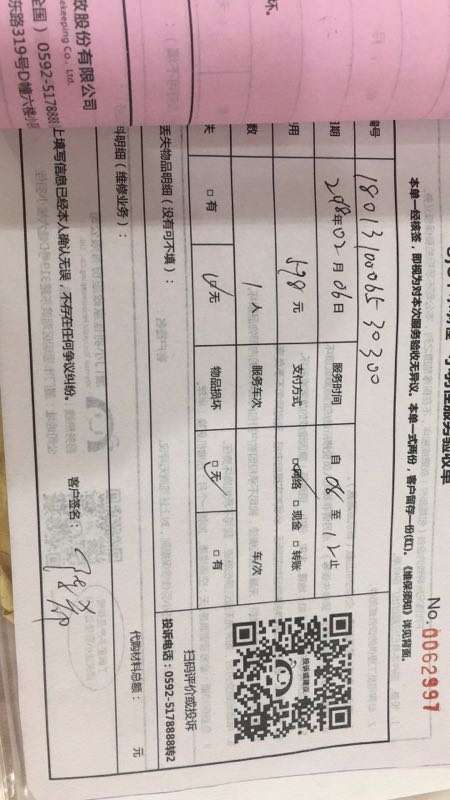 效股份有限公司
ekeeping Co., Ltd.
全国）0592-5178888
东路319号D幢六楼
务验收单
No. 0062997
本单一经核签，即视为对本次服务验收无异议。本单一式两份，客户留存一份(红)。《维保须知》详见背面。
编号 18013100065-30300
日期 2018年02月06日 服务时间 自 08 至 12 止
用 598 元 支付方式 ☑网络 □现金 □转账
数 1 人 服务车次 车/次
失 □有 ☑无 物品损坏 ☑无 □有
丢失物品明细（没有可不填）：
扫码评价或投诉
投诉电话：0592-5178888转2
料明细（维修业务）：
代购材料总额： 元
上填写信息已经本人确认无误，不存在任何争议纠纷。
客户签名：